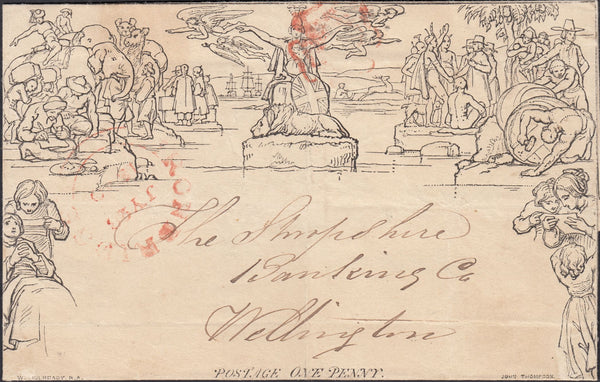 The Shropshire
Banking Co
Wellington
POSTAGE ONE PENNY.
W. MULREADY. R.A.
JOHN THOMPSON